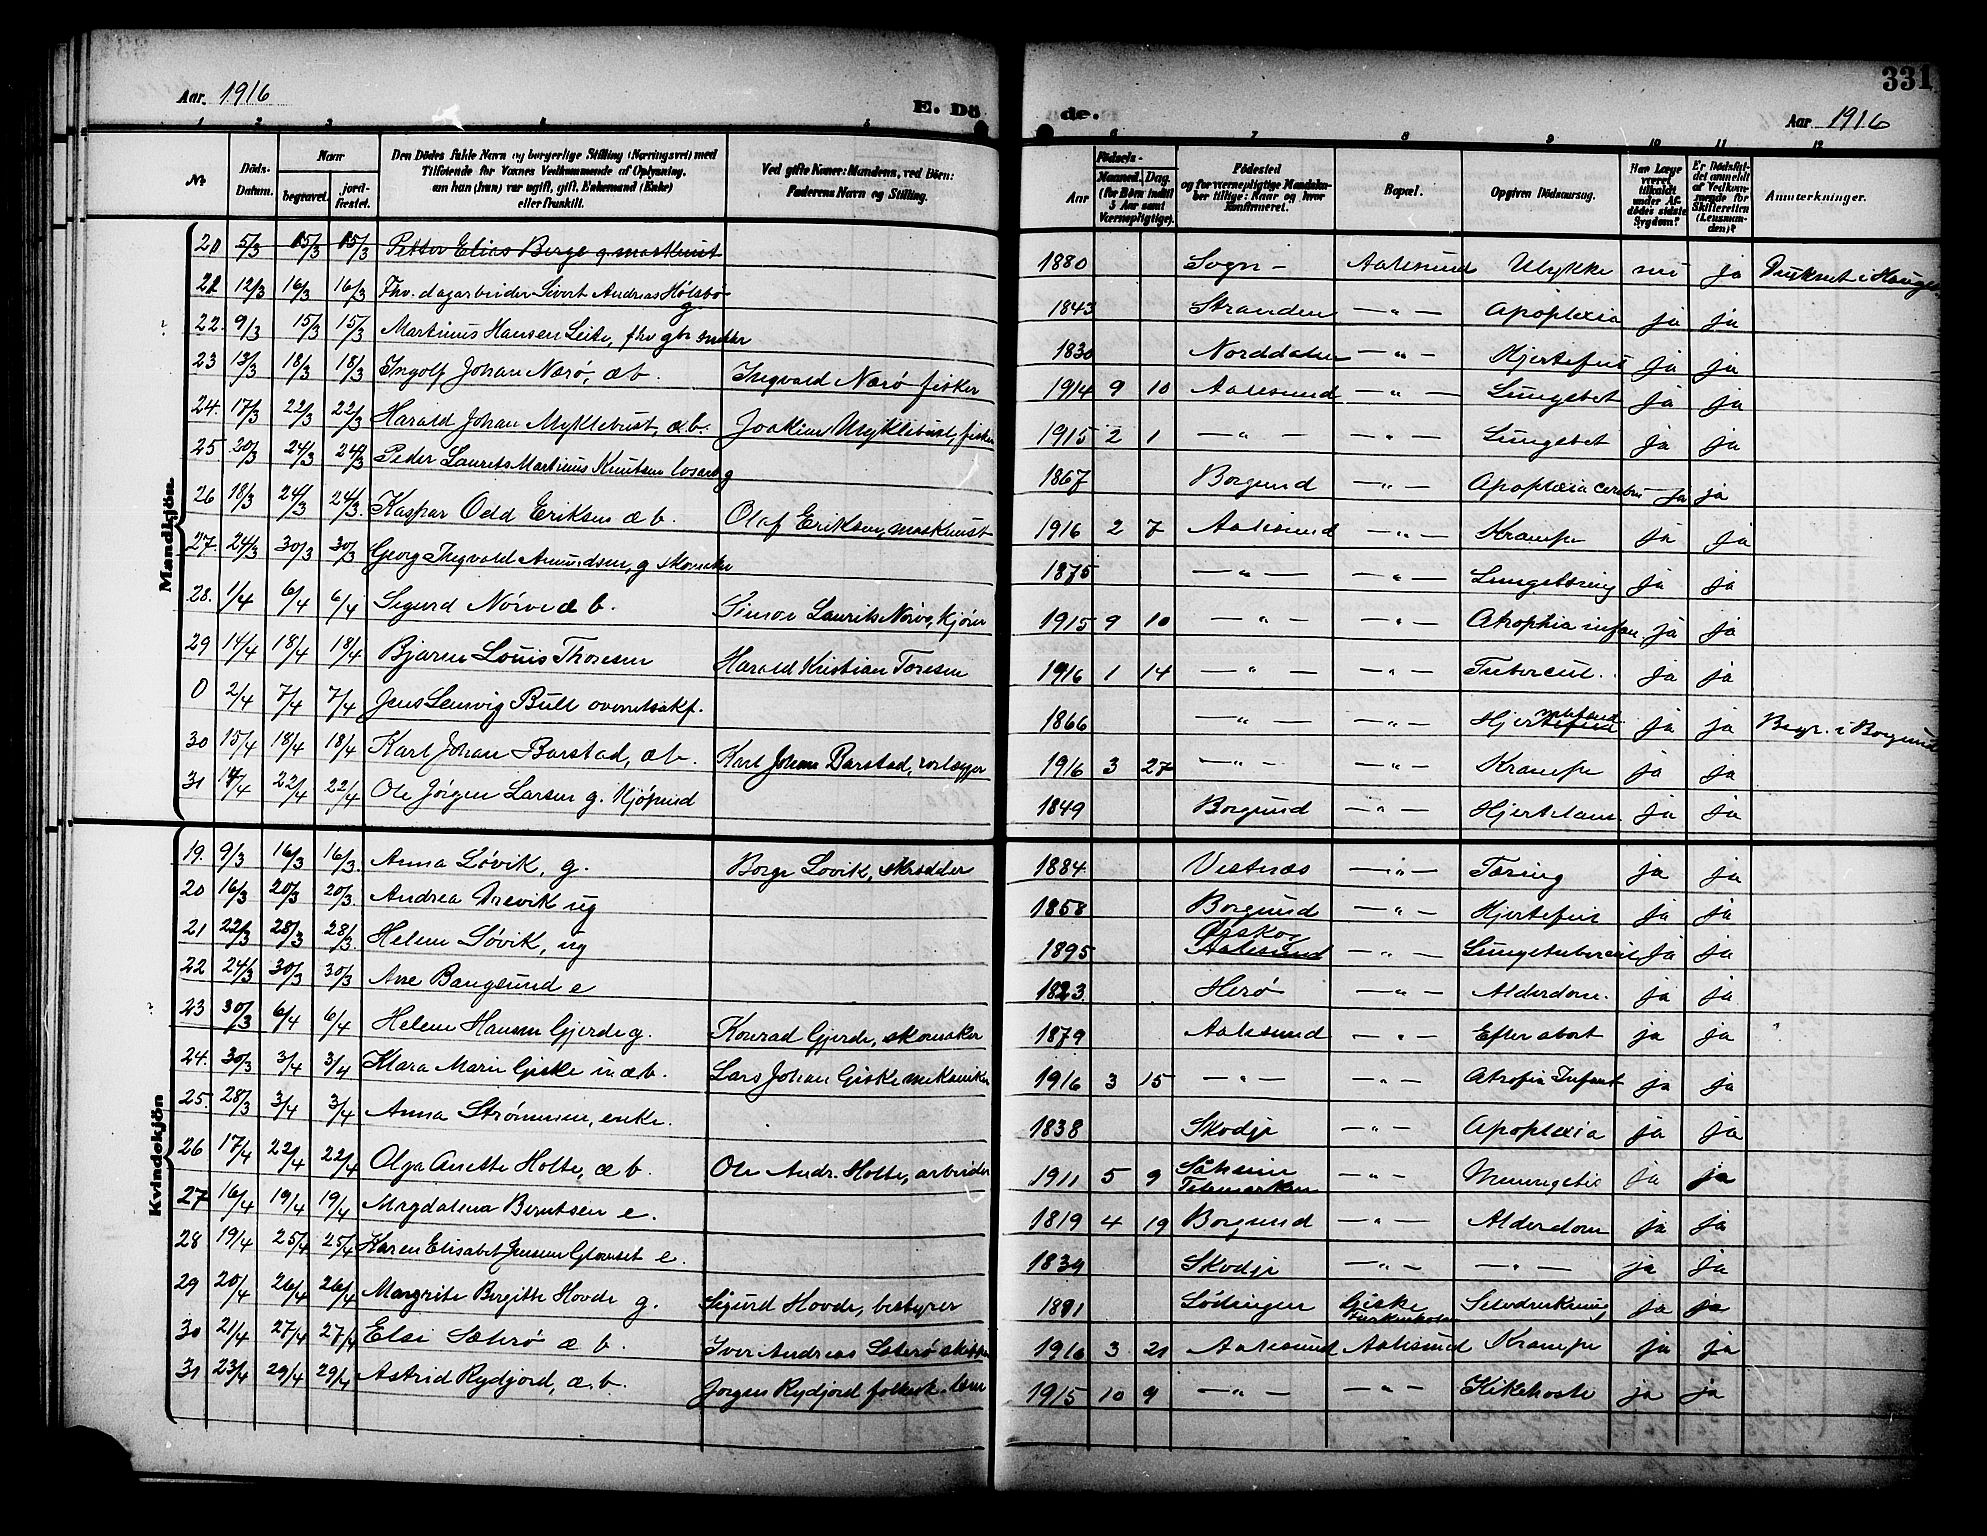 331
Aar 1916
E. Dö de.
Aar 1916
1 2 3 4 5 6 7 8 9 10 11 12
№
Döds-Datum.
Naar
begravet.
jordfæstet.
Den Dödes fulde Navn og borgerlige Stilling (Næringsvei) med Tilföiende for Voxnes Vedkommende af Oplysning, om han (hun) var ugift, gift, Enkemand (Enke) eller fraskilt.
Ved gifte Koner: Mandens, ved Börn: Faderens Navn og Stilling.
Födsels-
Aar
Maaned. Dag.
(for Börn indtil 5 Aar samt Værnepligtige).
Födested og for værnepligtige Mandskaber tillige: Naar og hvor konfirmeret.
Bopæl.
Opgiven Dödsaarsag.
Har Læge været tilkaldt under Afdödes sidste Sygdom?
Er Dödsfaldet anmeldt af Vedkommende for Skifteretten (Lensmanden)?
Anmærkninger.
Mandkjön
20 5/3 15/3 15/3 Petter Elias Berge g. maskinist 1880 Sogn – Aalesund Ulykke nei ja Druknet i
21 12/3 16/3 16/3 Fhv. dagarbeider Sivert Andreas Holsbø g 1843 Stranden – " – Apoplexia ja ja
22. 9/3 15/3 15/3 Martinus Hansen Leite, fhv gbr 1830 Norddalen – " – Hjertefeil ja ja
23 13/3 18/3 18/3 Ingolf Johan Nærø, æb. Ingvald Nærø fisker 1914 9 10 Aalesund – " – Lungebet ja ja
24. 17/3 22/3 22/3 Harald Johan Myklebust, æ.b. Joakim Myklebust, fisker 1915 2 1 – " – – " – Lungebet ja ja
25 20/3 24/3 24/3 Peder Laurits Martinus Knutsen losarb g 1867 Borgund – " – Apoplexia cerebri ja ja
26 18/3 24/3 24/3. Kaspar Odd Eriksen æ b. Olaf Eriksen, maskinist 1916 2 7 Aalesund – " – Krampe ja ja
27. 24/3 30/3 30/3 Georg Ingvald Amundsen, g skomaker 1875 – " – – " – Lungetæring ja ja
28. 1/4 6/4 6/4 Sigurd Nørve æ b. Simon Laurits Nørve, kjører 1915 9 10 – " – – " – Atrophia infan. ja ja
29 14/4 18/4 18/4 Bjarne Louis Thoresen Harald Kristian Toresen 1916 1 14 – " – – " – Tubercul. ja ja
0 2/4 7/4 7/4 Jens Bull overretssakf. 1866 – " – – " – Hjerte ja ja Begr. i Borgund
30 15/4 18/4 18/4 Karl Johan Barstad, æ b. Karl Johan Barstad, rørlægger 1916 3 27 – " – – " – Krampe ja ja
31 17/4 22/4 22/4 Ole Jørgen Larsen g. kjøpmd 1849 Borgund – " – Hjertelam ja ja
Kvindekjön
19. 9/3 16/3 16/3 Anna Løvik, g. Borge Løvik, skrædder 1884 Vestnæs – " – Tæring ja ja
20 16/3 20/3 20/3 Andrea Drevik ug 1858 Borgund – " – Hjertefeil ja ja
21 22/3 28/3 28/3 Helene Løvik, ug 1895 Ørskog Aalesund – " – Lungetubercul ja ja
22 24/3 30/3 30/3 Ane Baugsund e 1823. Herø – " – Alderdom. ja ja
23 30/3 6/4 6/4 Helene Hansen Gjerde g. Konrad Gjerde, skomaker 1879 Aalesund – " – Efter abort ja ja
24. 30/3 3/4 3/4 Klara Marie Giske uæb. Lars Johan Giske mekaniker 1916 3 15 – " – – " – Atrofia Infant ja ja
25. 28/3 3/4 3/4 Anna Strømmen, enke. 1838 Skodje – " – Apoplexia ja ja
26 17/4 22/4 22/4 Olga Anette Holte, æ b. Ole Andr. Holte, arbeider 1911 5 9 Såheim Telemarken – " – Meningetis ja ja
27 16/4 19/4 19/4 Magdalena Berntsen e. 1819 4 19 Borgund – " – Alderdom ja ja
28 19/4 25/4 25/4 Karen Elisabet Jensen e. 1839 Skodje – " – – " – ja ja
29 20/4 26/4 26/4 Margrete Birgitte Hovde g. Sigurd Hovde, bestyrer 1891 Lødingen Giske Selvdrukning ja ja
30 21/4 27/4 27/4 Elsi Sæterø æ b. Iver Andreas Sæterø skipper 1916 3 21 Aalesund Aalesund Krampe ja ja
31 23/4 29/4 29/4 Astrid Rydjord, æ.b. Jørgen Rydjord folkesk. lærer 1915 10 9 – " – – " – Kikhoste ja ja